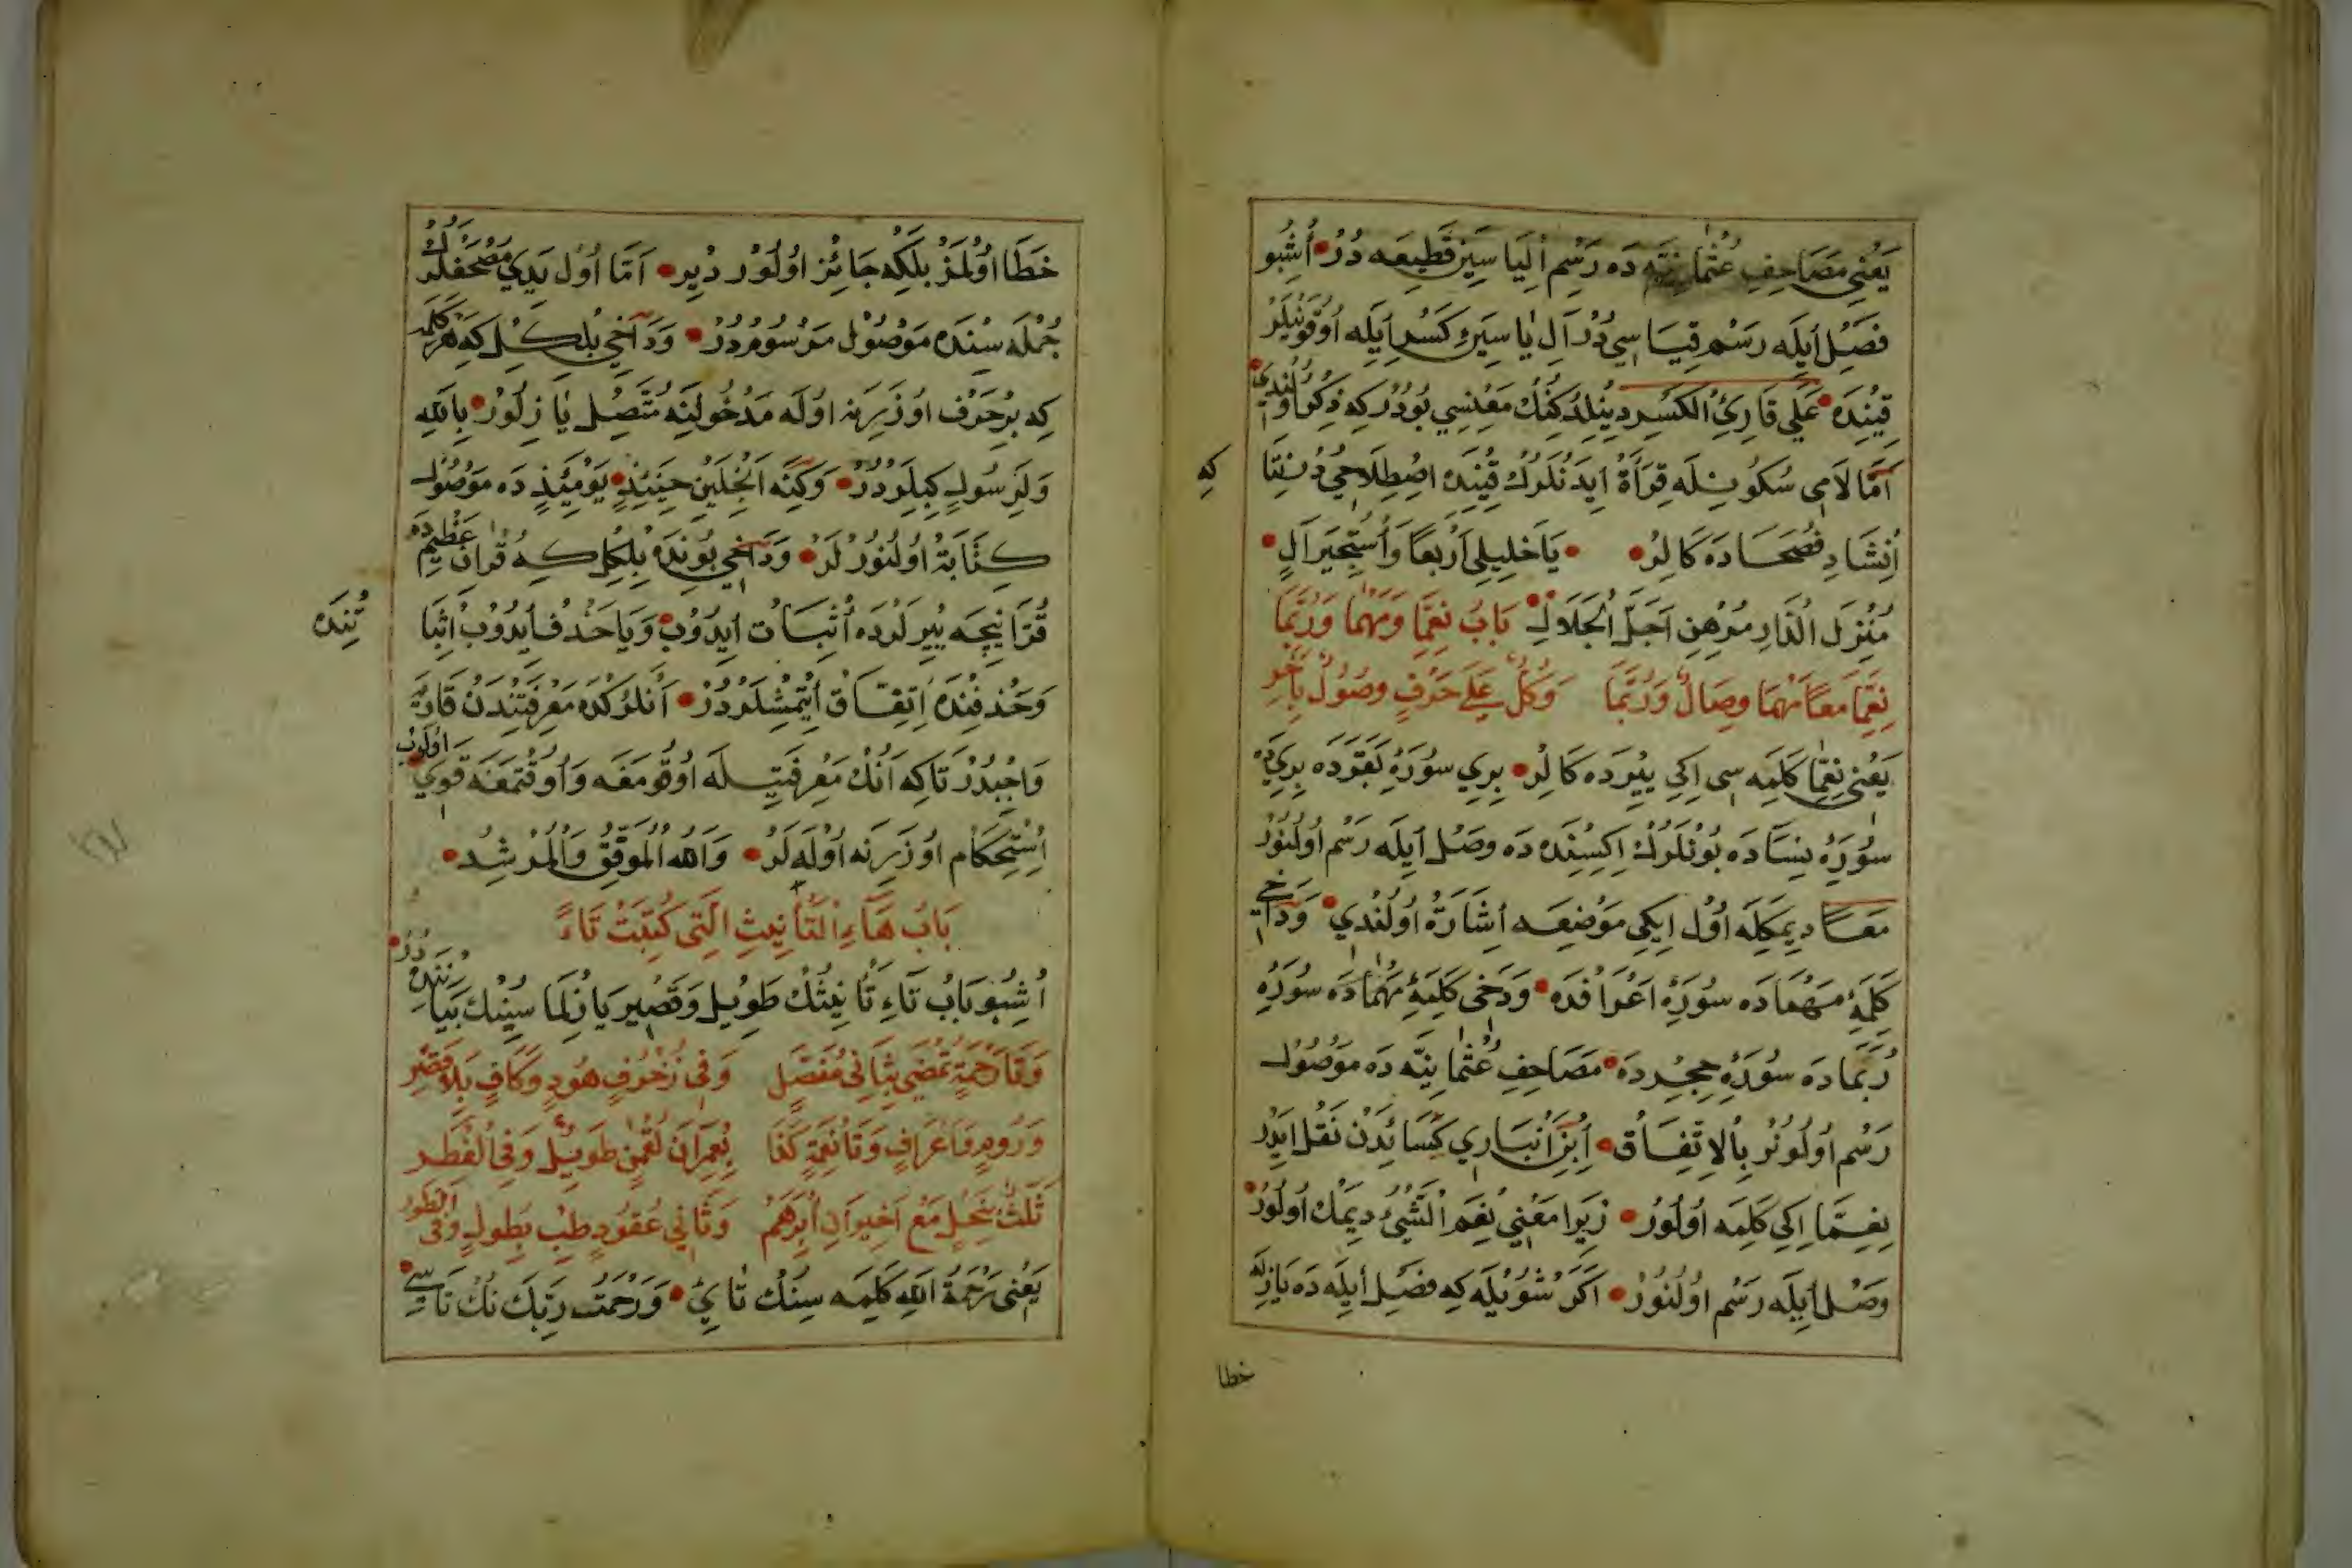 يَعْنِي مَصَاحِفِ عُثْمَانِيَّه دَه رَسْمِ اِلْيَا سِينْ قَطِيعَه دُرْ اُشْبُو
فَصْلِ اَيلَه رَسْمِ قِيَاسِي دُرْ آلِ يَا سِينْ كَسْرِ اَيلَه اُوقُونُيلَرْ
قِتِنْدَه عَلَى قَارِئِ الْكَسْرِ دِينِلْدُكِنُكْ مَعْنِسِي بُودُرْ كِه ذِكْر اُولُنْدِي
اَمَّا لَامِي سُكُونِيلَه قِرَأَةْ اَيدَنْلَرُكْ قِتِنْدَه اِصْطِلَاحِي دُرْ نِتَا
كِه
اِنْشَادِ فُصَحَادَه كَالِرْ يَا خَلِيلِي اَرْبَعًا وَاسْتَخْبِرَ آلْ
مُنْزِلَ الدَّارِ مِنْ هِنِ اَجَلَ الْجَلَالْ بَابُ نِعِمَّا وَمَهْمَا وَرُبَّمَا
نِعِمَّا مَعًا مَهْمَا وِصَالٌ وَرُبَّمَا وَكُلٌّ عَلَى حَرْفٍ وُصُولٌ بِآخَرِ
يَعْنِي نِعِمَّا كَلِمَه سِي اِكِي يِيرْدَه كَالِرْ بِرِي سُورَهٔ بَقَرَه دَه بِرِي دَه
سُورَهٔ نِسَادَه بُونْلَرُكْ اِكِسِنْدَه دَه وَصْلِ اَيلَه رَسْمِ اُولُنُورْ
مَعًا دِيمَكِلَه اُولْ اِيكِي مَوْضِعَه اِشَارَةْ اُولُنْدِي وَدَاخِي
كَلِمَهٔ مَهْمَادَه سُورَهٔ اَعْرَافْدَه وَدَخِي كَلِمَهٔ مَهْمَادَه سُورَهٔ
رُبَمَادَه سُورَهٔ حِجِرْدَه مَصَاحِفِ عُثْمَانِيَّه دَه مَوْصُولْ
رَسْمِ اُولُونُرْ بِالْاِتِّفَاقْ اِبْنِ اَنْبَارِي كِسَائِدَنْ نَقْلْ اِيدَرْ
نِعِمَّا اِكِي كَلِمَه اُولُورْ زِيرَا مَعْنِي نِعْمَ الشَّيْءُ دِيمَكْ اُولُورْ
وَصْلِ اَيلَه رَسْمِ اُولُنُورْ اَكَرْ شُويْلَه كِه فَصْلِ اَيلَه دَه يَازِلَه
خطا
خَطَا اُولْمَزْ بَلْكِه جَائِزْ اُولُورْ دِيرْ اَمَّا اُولْ يَدِي مُصْحَفْلَرُكْ
جُمْلَه سِنْدَه مَوْصُولْ مَرْسُومْدُرْ وَدَاخِي بِلْكِلْ كِه هَرْ كَلِمَه
كِه بِرْ حَرْفْ اُوزَرِينَه اُولَه مَدْخُولِينَه مُتَّصِلْ يَازِلُورْ بِاللّٰهِ
وَلِرَسُولٍ كِبِيلَرْدُرْ وَكَذَه اَنْجِلَيِنْ حِينَئِذٍ يَوْمَئِذٍ دَه مَوْصُولْ
كِتَابَةْ اُولُنُورْلَرْ وَدَاخِي بُونْدَه بِلْكِلْ كِه قُرْآنِ عَظِيمْدَه
قُرَّا نِيچَه يِيرْلَرْدَه اِثْبَاتْ اِيدُوبْ وَيَا حَذْفْ اَيدُوبْ اِثْبَا
تِنْدَه
وَحَذْفِنْدَه اِتِّفَاقْ اِتْمِشْلَرْدُرْ اَنْلَرُكْدَه مَعْرِفَتِنْدَنْ قَارِيَه
وَاجِبْدُرْ تَاكِه اَنُكْ مَعْرِفَتِيلَه اُوقُومَغَه وَاُوقُتْمَغَه قَوِي اُولُوبْ
اِسْتِحْكَامْ اُوزَرِنَه اُولَه لَرْ وَاللّٰهُ الْمُوَفِّقُ وَالْمُرْشِدُ
بَابُ هَاءِ التَّأْنِيثِ الَّتِي كُتِبَتْ تَاءً
اُشْبُو بَابُ تَاءِ تَأْنِيثُكْ طَوِيلْ وَقَصِيرْ يَازِلْمَاسِينُكْ بَيَانِنْدَه دُرْ
وَتَا رَحْمَةٍ تَمْضِي بِثَانِي مُفَصَّلٍ وَفِي زُخْرُفٍ هُودٍ وَكَافٍ بِلَا قَصْرِ
وَرُومٍ وَاَعْرَافٍ وَتَا نِعْمَةٍ كَفَا بِعِمْرَانَ لُقْمٰنٍ طَوِيلٌ وَفِي الْفَطْرِ
ثَلٰثٌ بِنَحْلٍ مَعْ اَخِيرَانِ اِبْرٰهَمْ وَثَانِي عُقُودٍ طِبْ بِطُولٍ وَفِي الطُّورِ
يَعْنِي رَحْمَةُ اللّٰهِ كَلِمَه سِنُكْ تَايِي وَرَحْمَتُ رَبِّكَ نُكْ تَاسِي